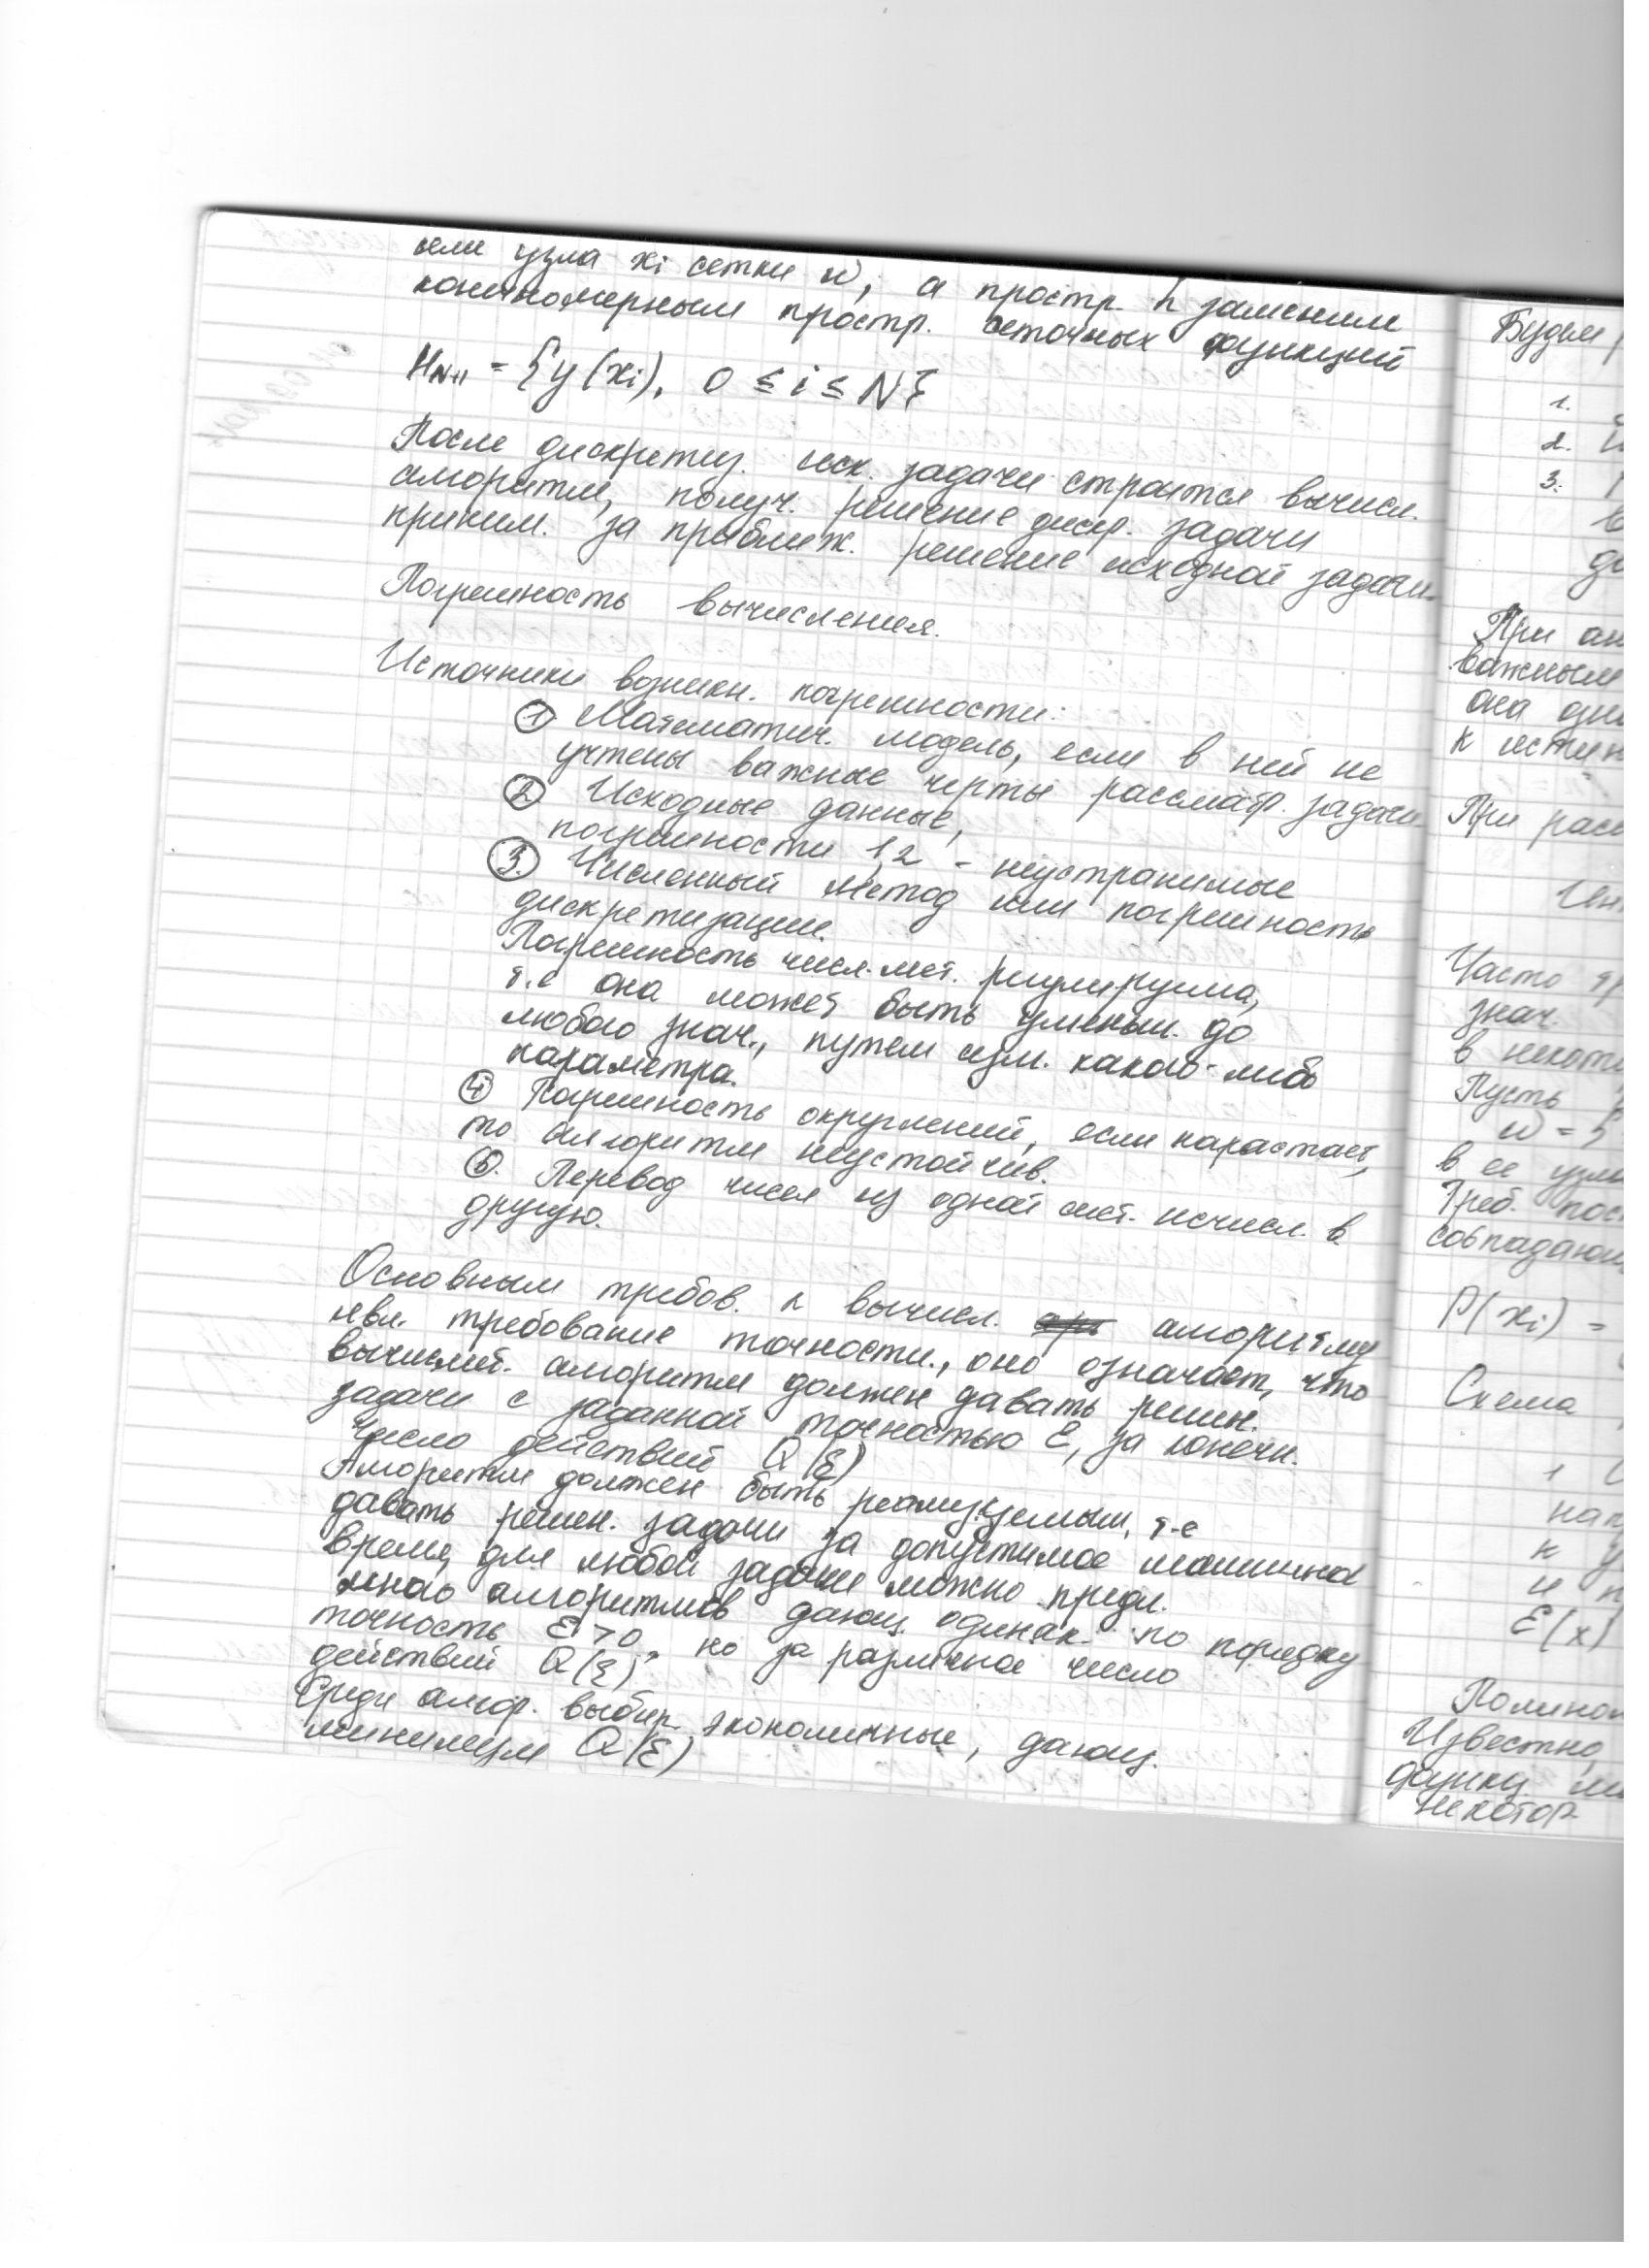 или узла xi сетки w, а простр. h заменим
конечномерным простр. сеточных функций
H_{N+1} = {y(xi), 0 ≤ i ≤ N}
После дискретиз. исх. задачи строится вычисл.
алгоритм, получ. решение дискр. задачи
приним. за приближ. решение исходной задачи.
Погрешность вычисления.
Источники возникн. погрешности:
① Математич. модель, если в ней не
учтены важные черты рассматр. задачи
② Исходные данные,
погрешности 1,2 - неустранимые
③. Численный метод или погрешность
дискретизации.
Погрешность числ. мет. регулируема,
т.е она может быть уменьш. до
любого знач., путем изм. какого-либо
параметра.
④ Погрешность округлений, если нарастает,
то алгоритм неустойчив.
⑤. Перевод чисел из одной сист. исчисл. в
другую.
Основным требов. к вычисл. алгоритму
явл. требование точности., оно означает, что
вычислит. алгоритм должен давать решен.
задачи с заданной точностью ε, за конечн.
число действий Q(ε)
Алгоритм должен быть реализуемым, т-е
давать решен. задачи за допустимое машинное
время, для любой задачи можно предл.
много алгоритмов дающ. одинак. по порядку
точность ε>0, но за различное число
действий Q(ε)
Среди алгор. выбир. экономичные, дающ.
минимум Q(ε)
Будем
1.
2.
3.
При
важным
она
к
При расс
Часто
знач.
в некот
Пусть
w = {
в ее узл
Треб. пос
совпадающ
P(xi) =
Схема
1
нап
к у
и п
E(x)
Полином
Известно,
функц
некотор